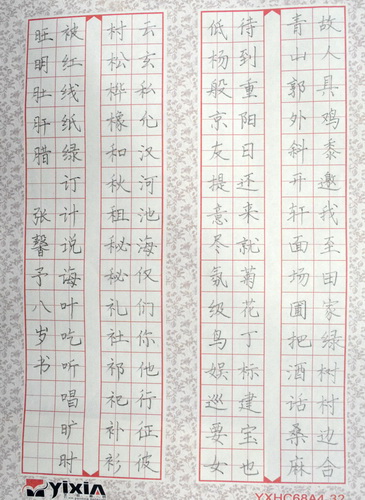 故人具鸡黍邀我至田家绿树村边合
青山郭外斜开轩面场圃把酒话桑麻
待到重阳日还来就菊花丁标建宝也
低杨般京友提意尽氛级鸟娱巡要女
云玄私允汉河池海仅们你他行征彼
村松桦橡和秋租秘秘礼社祁祀补衫
被红线纸绿订计说诲叶吃听唱旷时
旺明肚肝腊 张馨予八岁书
yixin
YXHC68A4-32